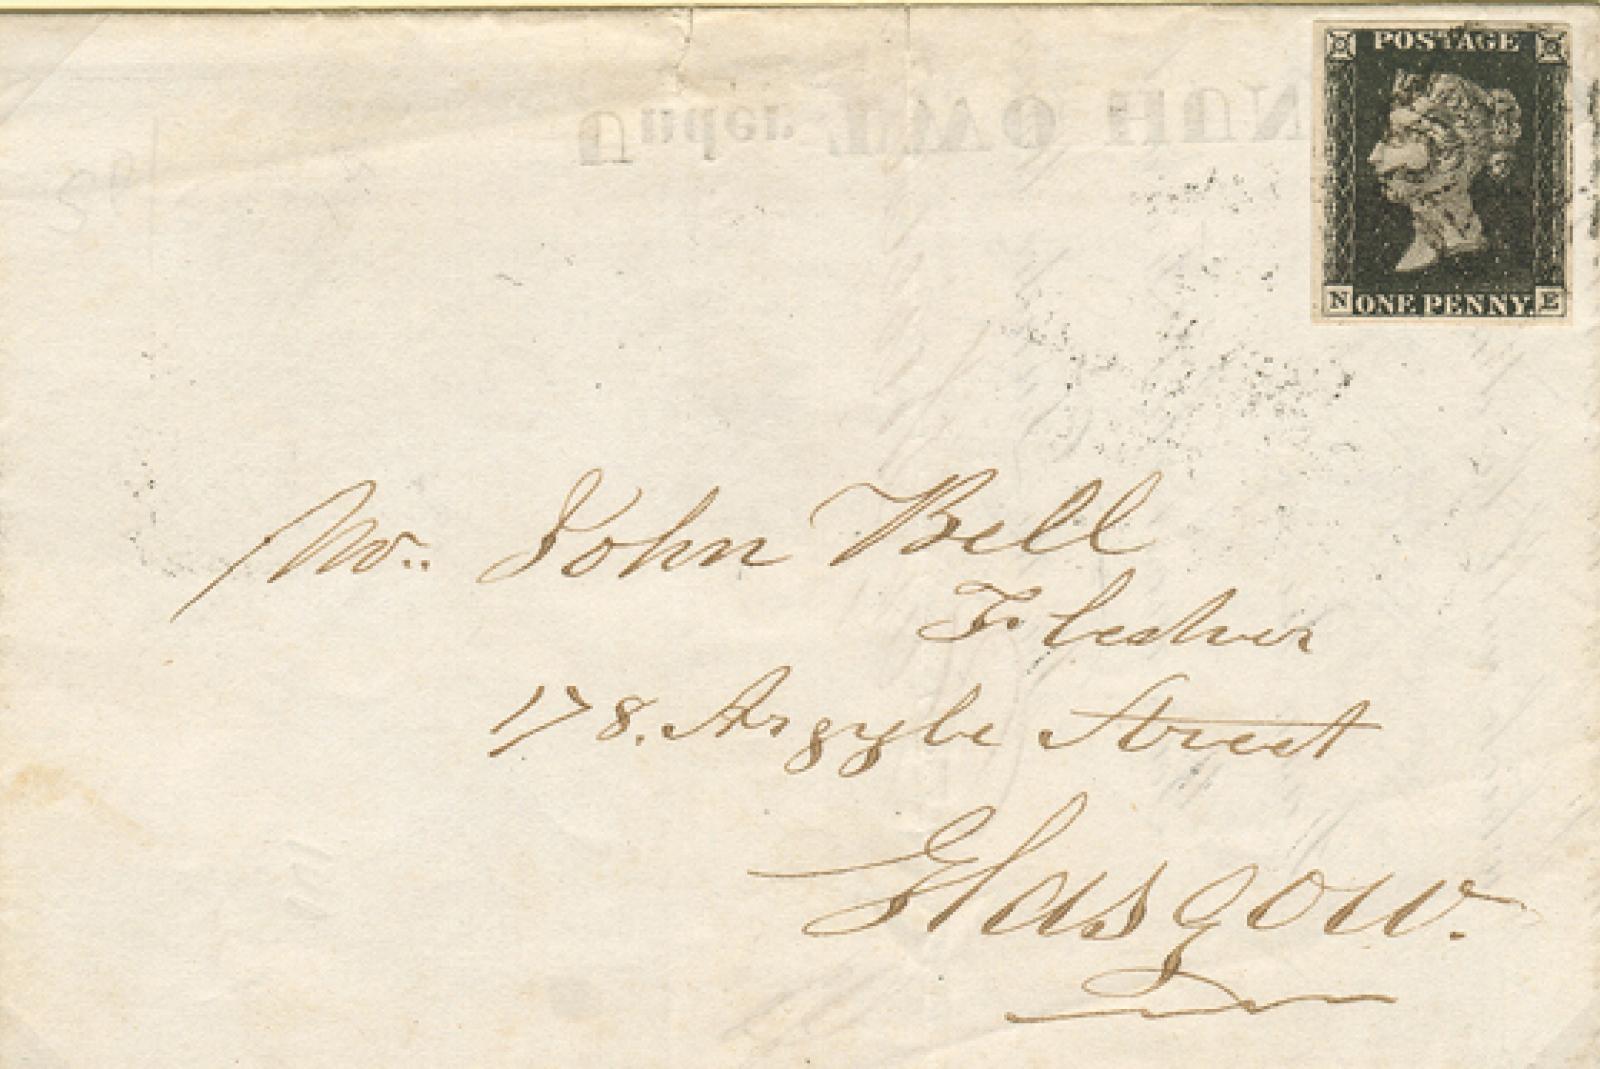 POSTAGE
N ONE PENNY. E
Mr. John Bell
Flesher
178. Argyle Street
Glasgow.